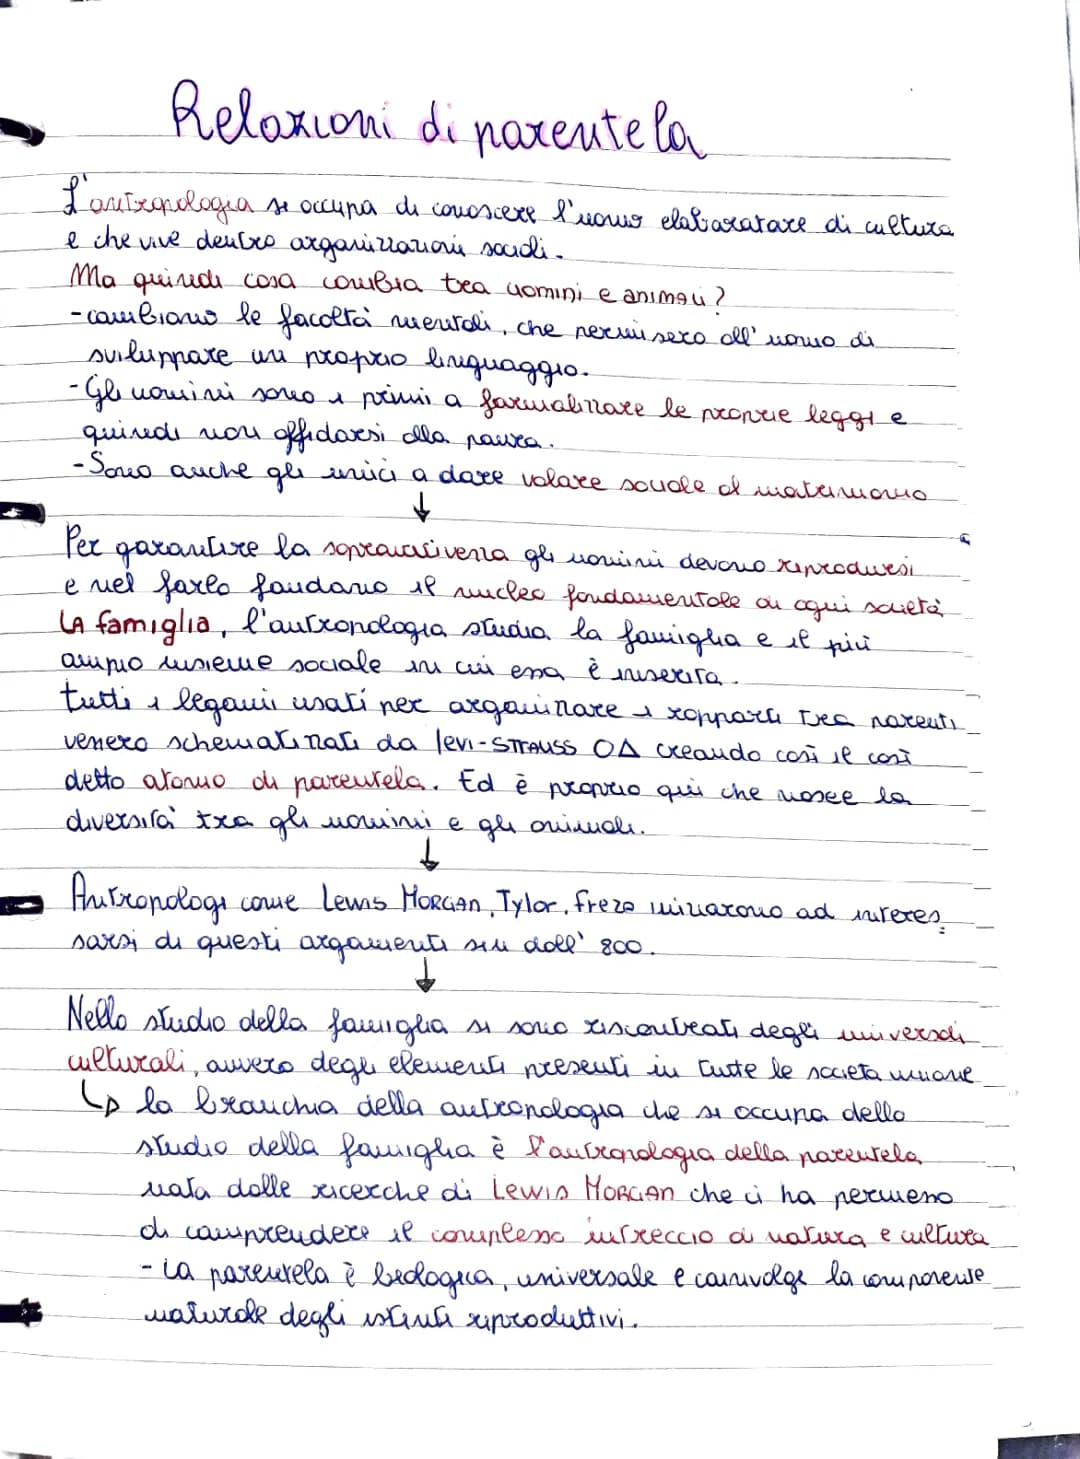 Relazioni di parentela
L'antropologia si occupa di conoscere l'uomo elaboratore di cultura
e che vive dentro organizzazioni sociali.
Ma quindi cosa cambia tra uomini e animali?
-cambiano le facoltà mentali, che permisero all'uomo di
sviluppare un proprio linguaggio.
-Gli uomini sono i primi a formalizzare le proprie leggi e
quindi non affidarsi alla paura.
-Sono anche gli unici a dare valore sociale al matrimonio
↓
Per garantire la sopravvivenza gli uomini devono riprodursi
e nel farlo fondano il nucleo fondamentale di ogni società
LA famiglia, l'antropologia studia la famiglia e il più
ampio insieme sociale in cui essa è inserita.
tutti i legami usati per organizzare i rapporti tra parenti
venero schematizzati da levi-STRAUSS O∆ creando così il così
detto atomo di parentela. Ed è proprio qui che nasce la
diversità tra gli uomini e gli animali.
↓
Antropologi come Lewis MORGAN, Tylor, frezo iniziarono ad interes_
sarsi di questi argomenti sin dall' 800.
↓
Nello studio della famiglia si sono riscontrati degli universali
culturali, ovvero degli elementi presenti in tutte le società umane
↳ la branchia della antropologia che si occupa dello
studio della famiglia è l'antropologia della parentela
nata dalle ricerche di Lewis MORGAN che ci ha permesso
di comprendere il complesso intreccio di natura e cultura
- La parentela è biologica, universale e coinvolge la componente
naturale degli istinti riproduttivi.